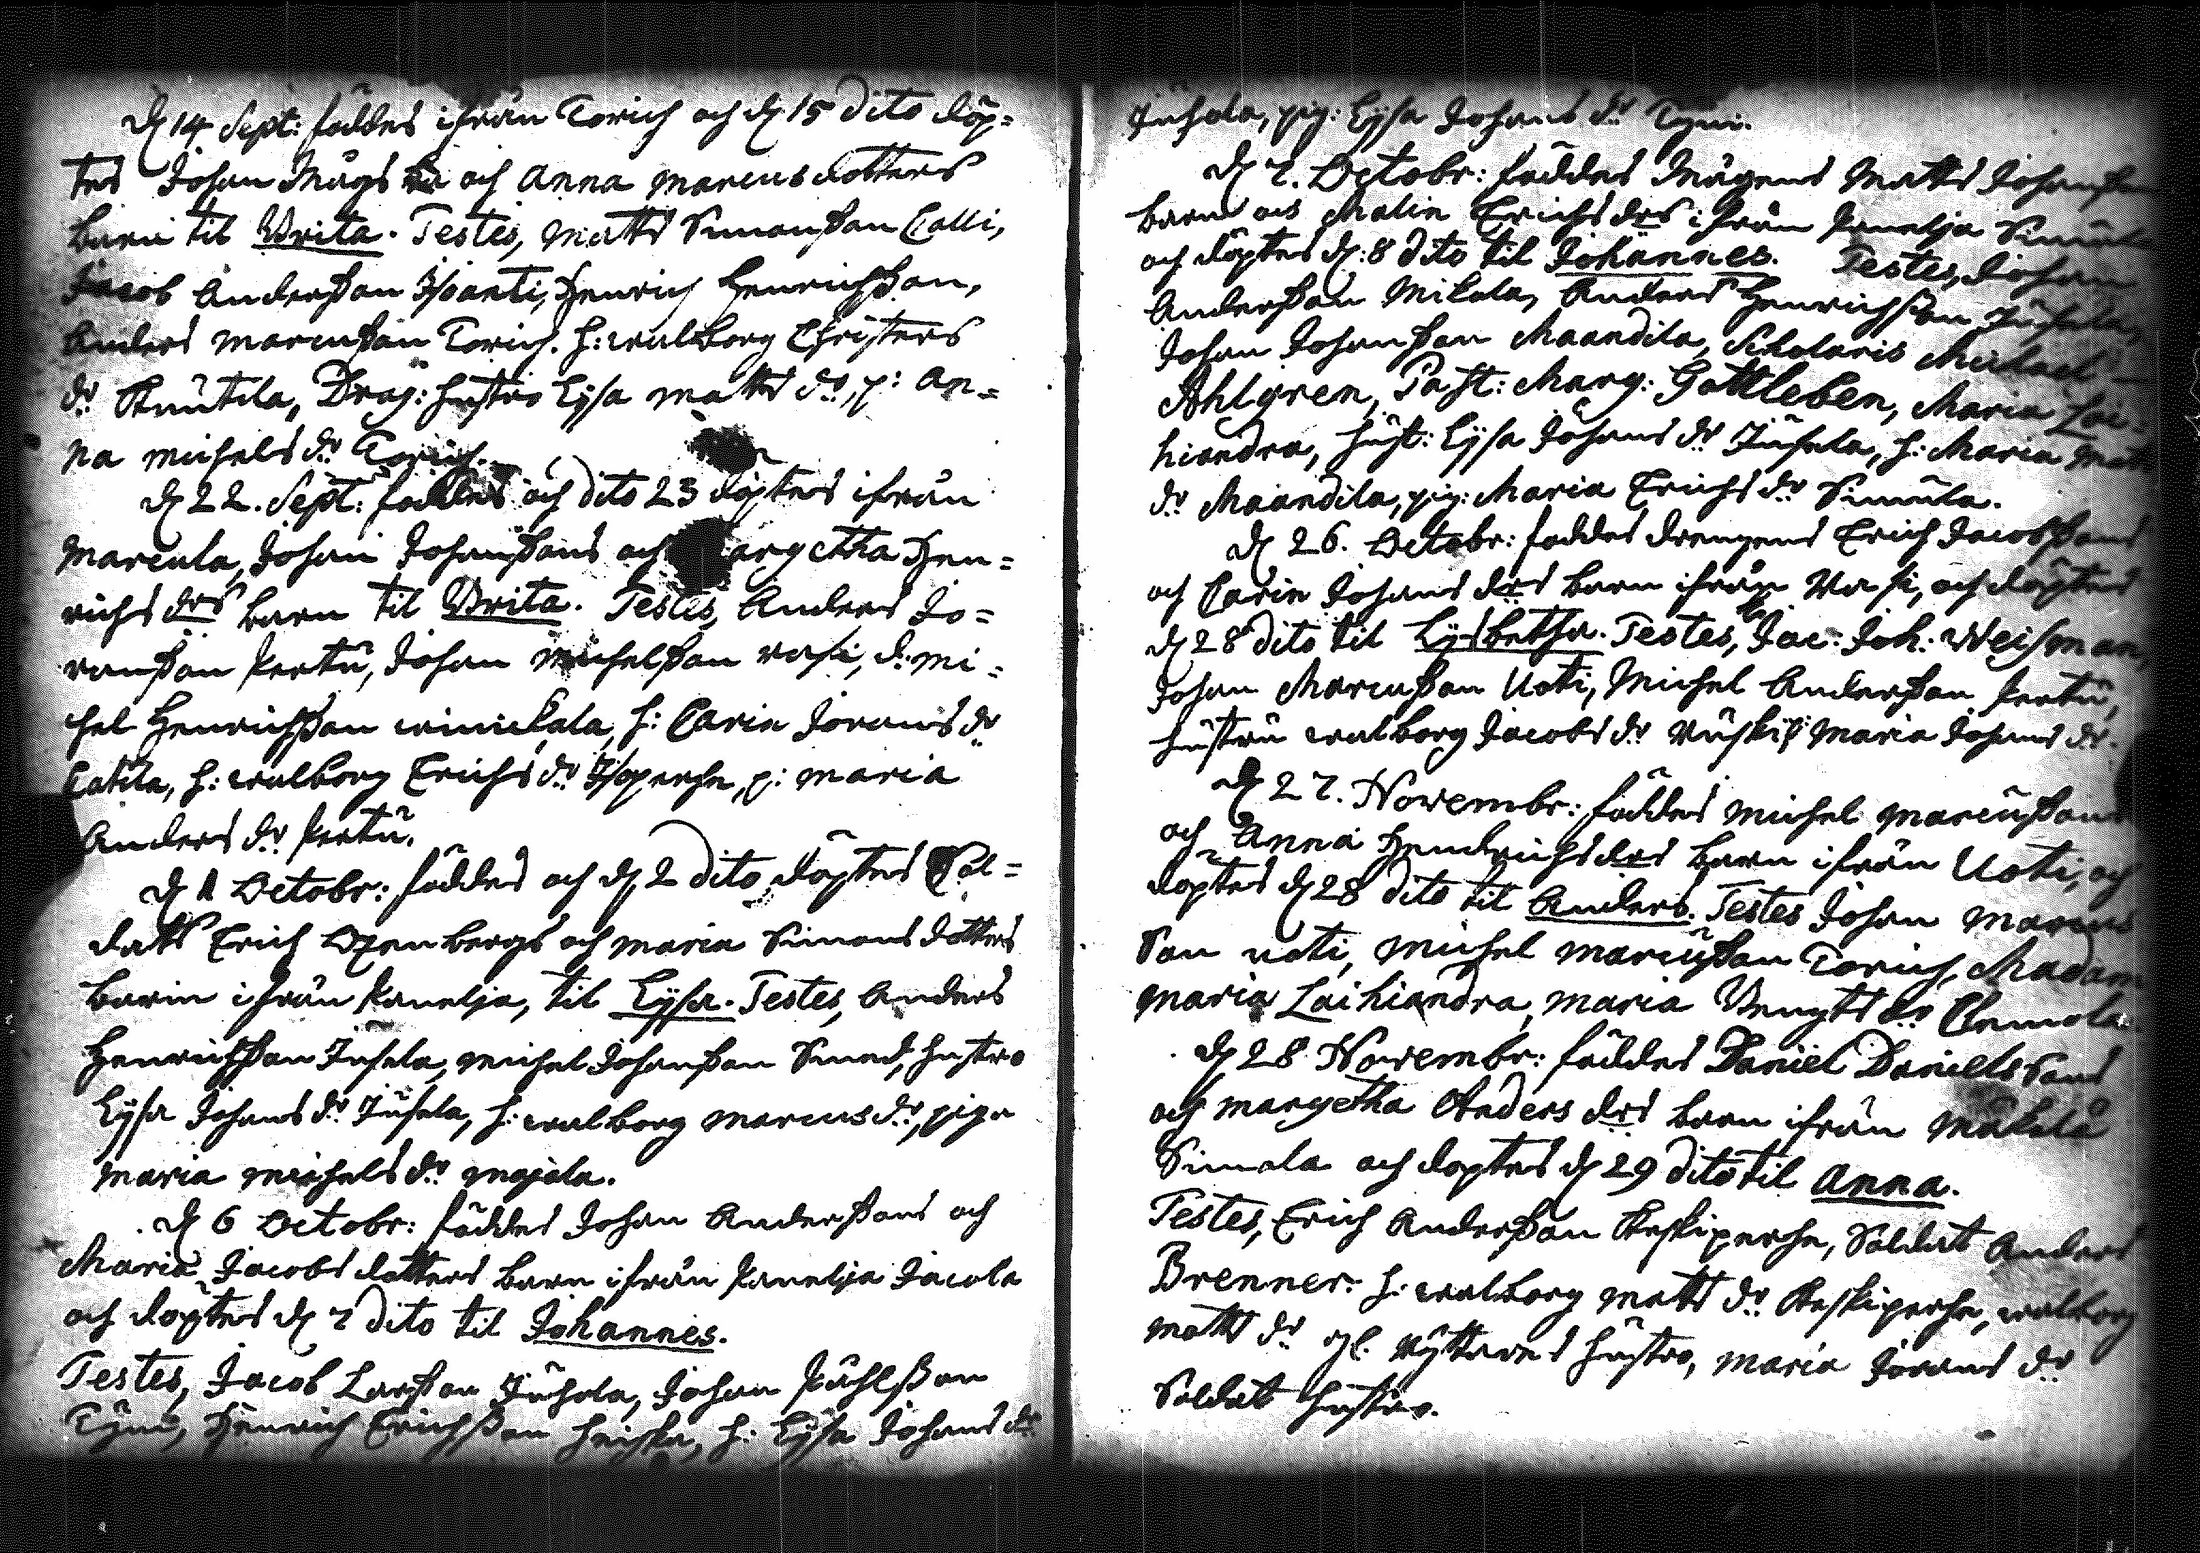 d 14 Sept: föddes ifrån Torich och d 15 dito döp=
tes Johan Mågs och Anna Marcus dotters
barn til Brita. Testes, Matts Simonsson Calli,
Jacob Andersson Isoanti, Henrich Henrichsson,
Anders Marcusson Torich. h: walborg Christers
dr Knutila, Dräg: hustro Lysa Matts dr, p: An=
na Michels dr Torich.
d 22. Sept: föddes och dito 23 döptes ifrån
Marcula, Johan Johanssons och Margetha Hen=
richs drs barn til Brita. Testes, Anders Jö=
ransson Pertu, Johan Michelsson rasi, d: Mi=
hel Henrichsson winickala, h: Carin Jörans dr
Catila, h: walborg Erichs dr Isoperhe, p: Maria
Anders dr Pertu.
d 1 Octobr: föddes och d 2 dito döptes Sol=
dats Erich Oxenbergs och Maria Simons dotters
barn ifrån Panelja, til Lysa. Testes, Anders
Henrichsson Jusela, Michel Johansson Smed, hustro
Lysa Johans dr Jusela, h: walborg Marcus dr, piga
Maria Michels dr Mojola.
d 6 Octobr: föddes Johan Anderssons och
Maria Jacobs dotters barn ifrån Panelja Jacola
och döptes d 7 dito til Johannes.
Testes, Jacob Larsson Juhola, Johan Påhlsson
Tyni, Henrich Erichsson heiska, h: Lysa Johans dr
Juhola, pig: Lysa Johans dr Tyni.
d 7. Octobr: föddes Mågens Matts Johanssons
barn och Malin Erichs drs ifrån Panelja Simula
och döptes d: 8 dito til Johannes. Testes, Johan
Andersson Mikola, Anders Henrichsson Jusela,
Johan Johansson Maandila, Scholaris Michael
Ahlgren, Past: Marg: Gottleben, Maria Lai=
hiandra, hust: Lysa Johans dr Jusela, h: Maria Matts
dr Maandila, pig: Maria Erichs dr Simula.
d 26. Octobr: föddes drengens Erich Jacobssons
och Carin Johans drs barn ifrån Rasi, och döptes
d 28 dito til Lysbetha. Testes, Jac: Joh: Weisman,
Johan Marcusson Uoti, Michel Andersson Pertu,
hustru walborg Jacobs dr Ruski p: Maria Johans dr.
d 27. Novembr: föddes Michel Marcussons
och Anna Hendrichs drs barn ifrån Uoti, och
döptes d 28 dito til Anders. Testes Johan Marcus
Son uoti, Michel Marcusson Torich, Madam
Maria Laihiandra, Maria Bengts dr Clemola.
d 28 Novembr: föddes Daniel Daniels Sons
och Margetha Anders drs barn ifrån Mäkelä
Simola och döptes d 29 dito til Anna.
Testes, Erich Andersson Keskiperhe, Soldat Anders
Brenner. h: walborg Matts dr Keskiperhe, walborg
Matts dr gl. ryttares hustro, Maria Jörans dr
Soldat hustro.